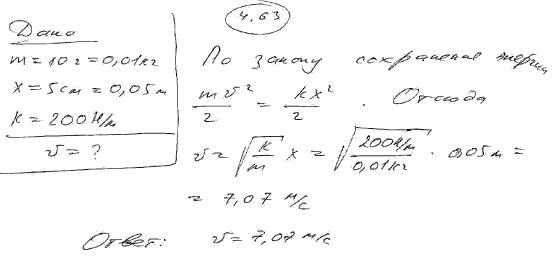 4.63
Дано
m = 10 г = 0,01 кг
x = 5 см = 0,05 м
k = 200 Н/м
v = ?
По закону сохранения энергии
mv²/2 = kx²/2. Отсюда
v = √(k/m) x = √(200 Н/м / 0,01 кг) · 0,05 м =
= 7,07 м/с
Ответ: v = 7,07 м/с